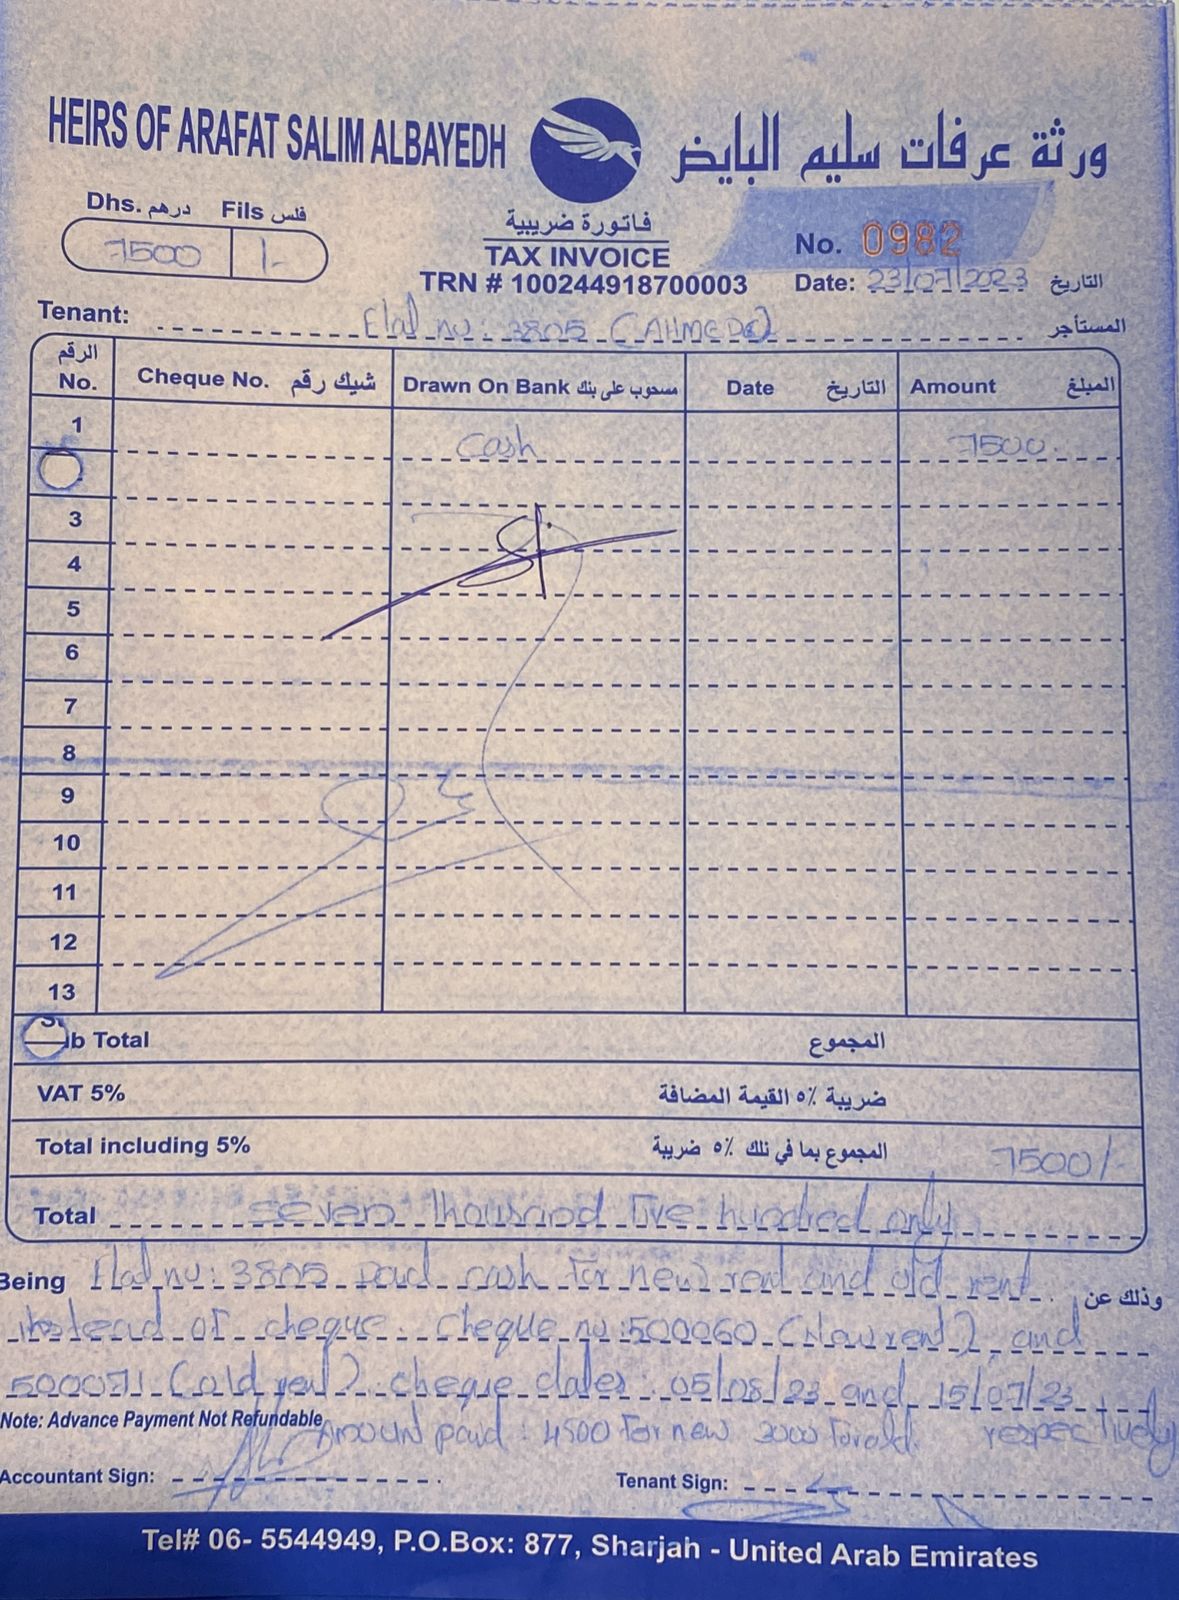 HEIRS OF ARAFAT SALIM ALBAYEDH
ورثة عرفات سليم البايض
Dhs. درهم Fils فلس
7500 /-
فاتورة ضريبية
TAX INVOICE
TRN # 100244918700003
No. 0982
Date: 23/07/2023 التاريخ
Tenant: Flat no: 3805 (AHMED) المستأجر
الرقم No. Cheque No. شيك رقم Drawn On Bank مسحوب على بنك Date التاريخ Amount المبلغ
1 Cash 7500
3
4
5
6
7
8
9
10
11
12
13
Sub Total المجموع
VAT 5% ضريبة ٥٪ القيمة المضافة
Total including 5% المجموع بما في تلك ٥٪ ضريبة 7500/-
Total seven thousand five hundred only
Being Flat no: 3805 paid cash for new rent and old rent وذلك عن
instead of cheque. Cheque no: 500060 (New rent) and
500071 (old rent). cheque dates: 05/08/23 and 15/07/23
Note: Advance Payment Not Refundable
Amount paid: 4500 for new 3000 for old. respectively
Accountant Sign:
Tenant Sign:
Tel# 06- 5544949, P.O.Box: 877, Sharjah - United Arab Emirates